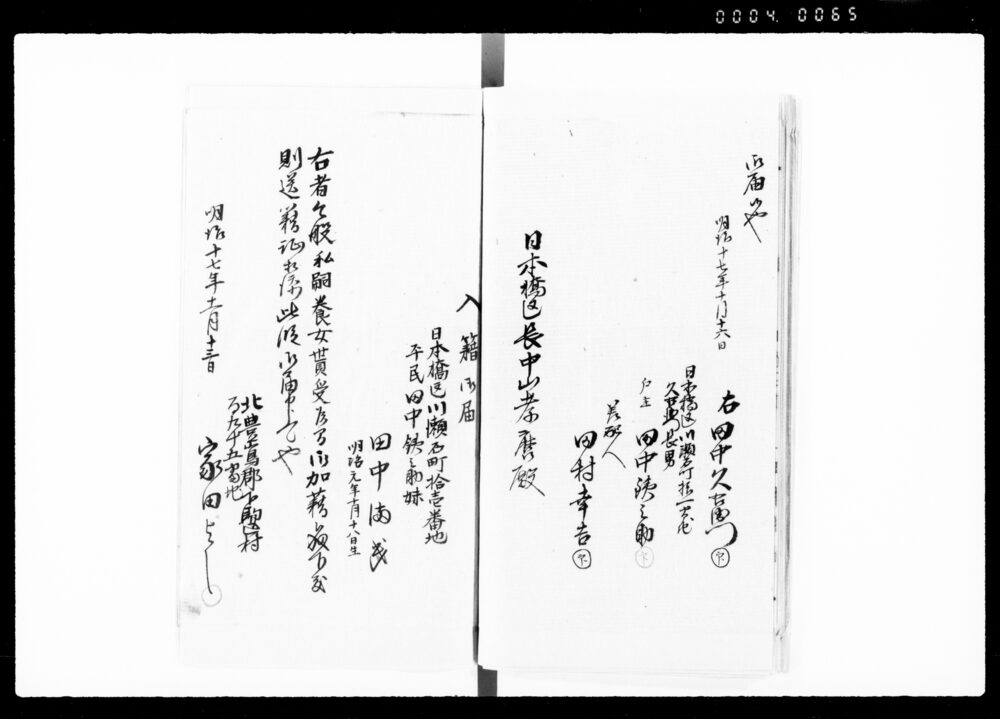 0004 0065
御届候也
明治十七年十月十六日
右 田中久右衛門 印
日本橋区川瀬石町拾一番地
久右衛門長男
戸主 田中銕之助 印
差配人
田村幸吉 印
日本橋区長中山孝麿殿
入籍御届
日本橋区川瀬石町拾壱番地
平民田中銕之助妹
田中満代
明治元年十月十八日生
右者今般私嗣養女貰受候間御加籍被下度
則送籍証相添此段御届申上候也
明治十七年十一月十三日
北豊島郡下駒込村
百九十五番地
家田よし